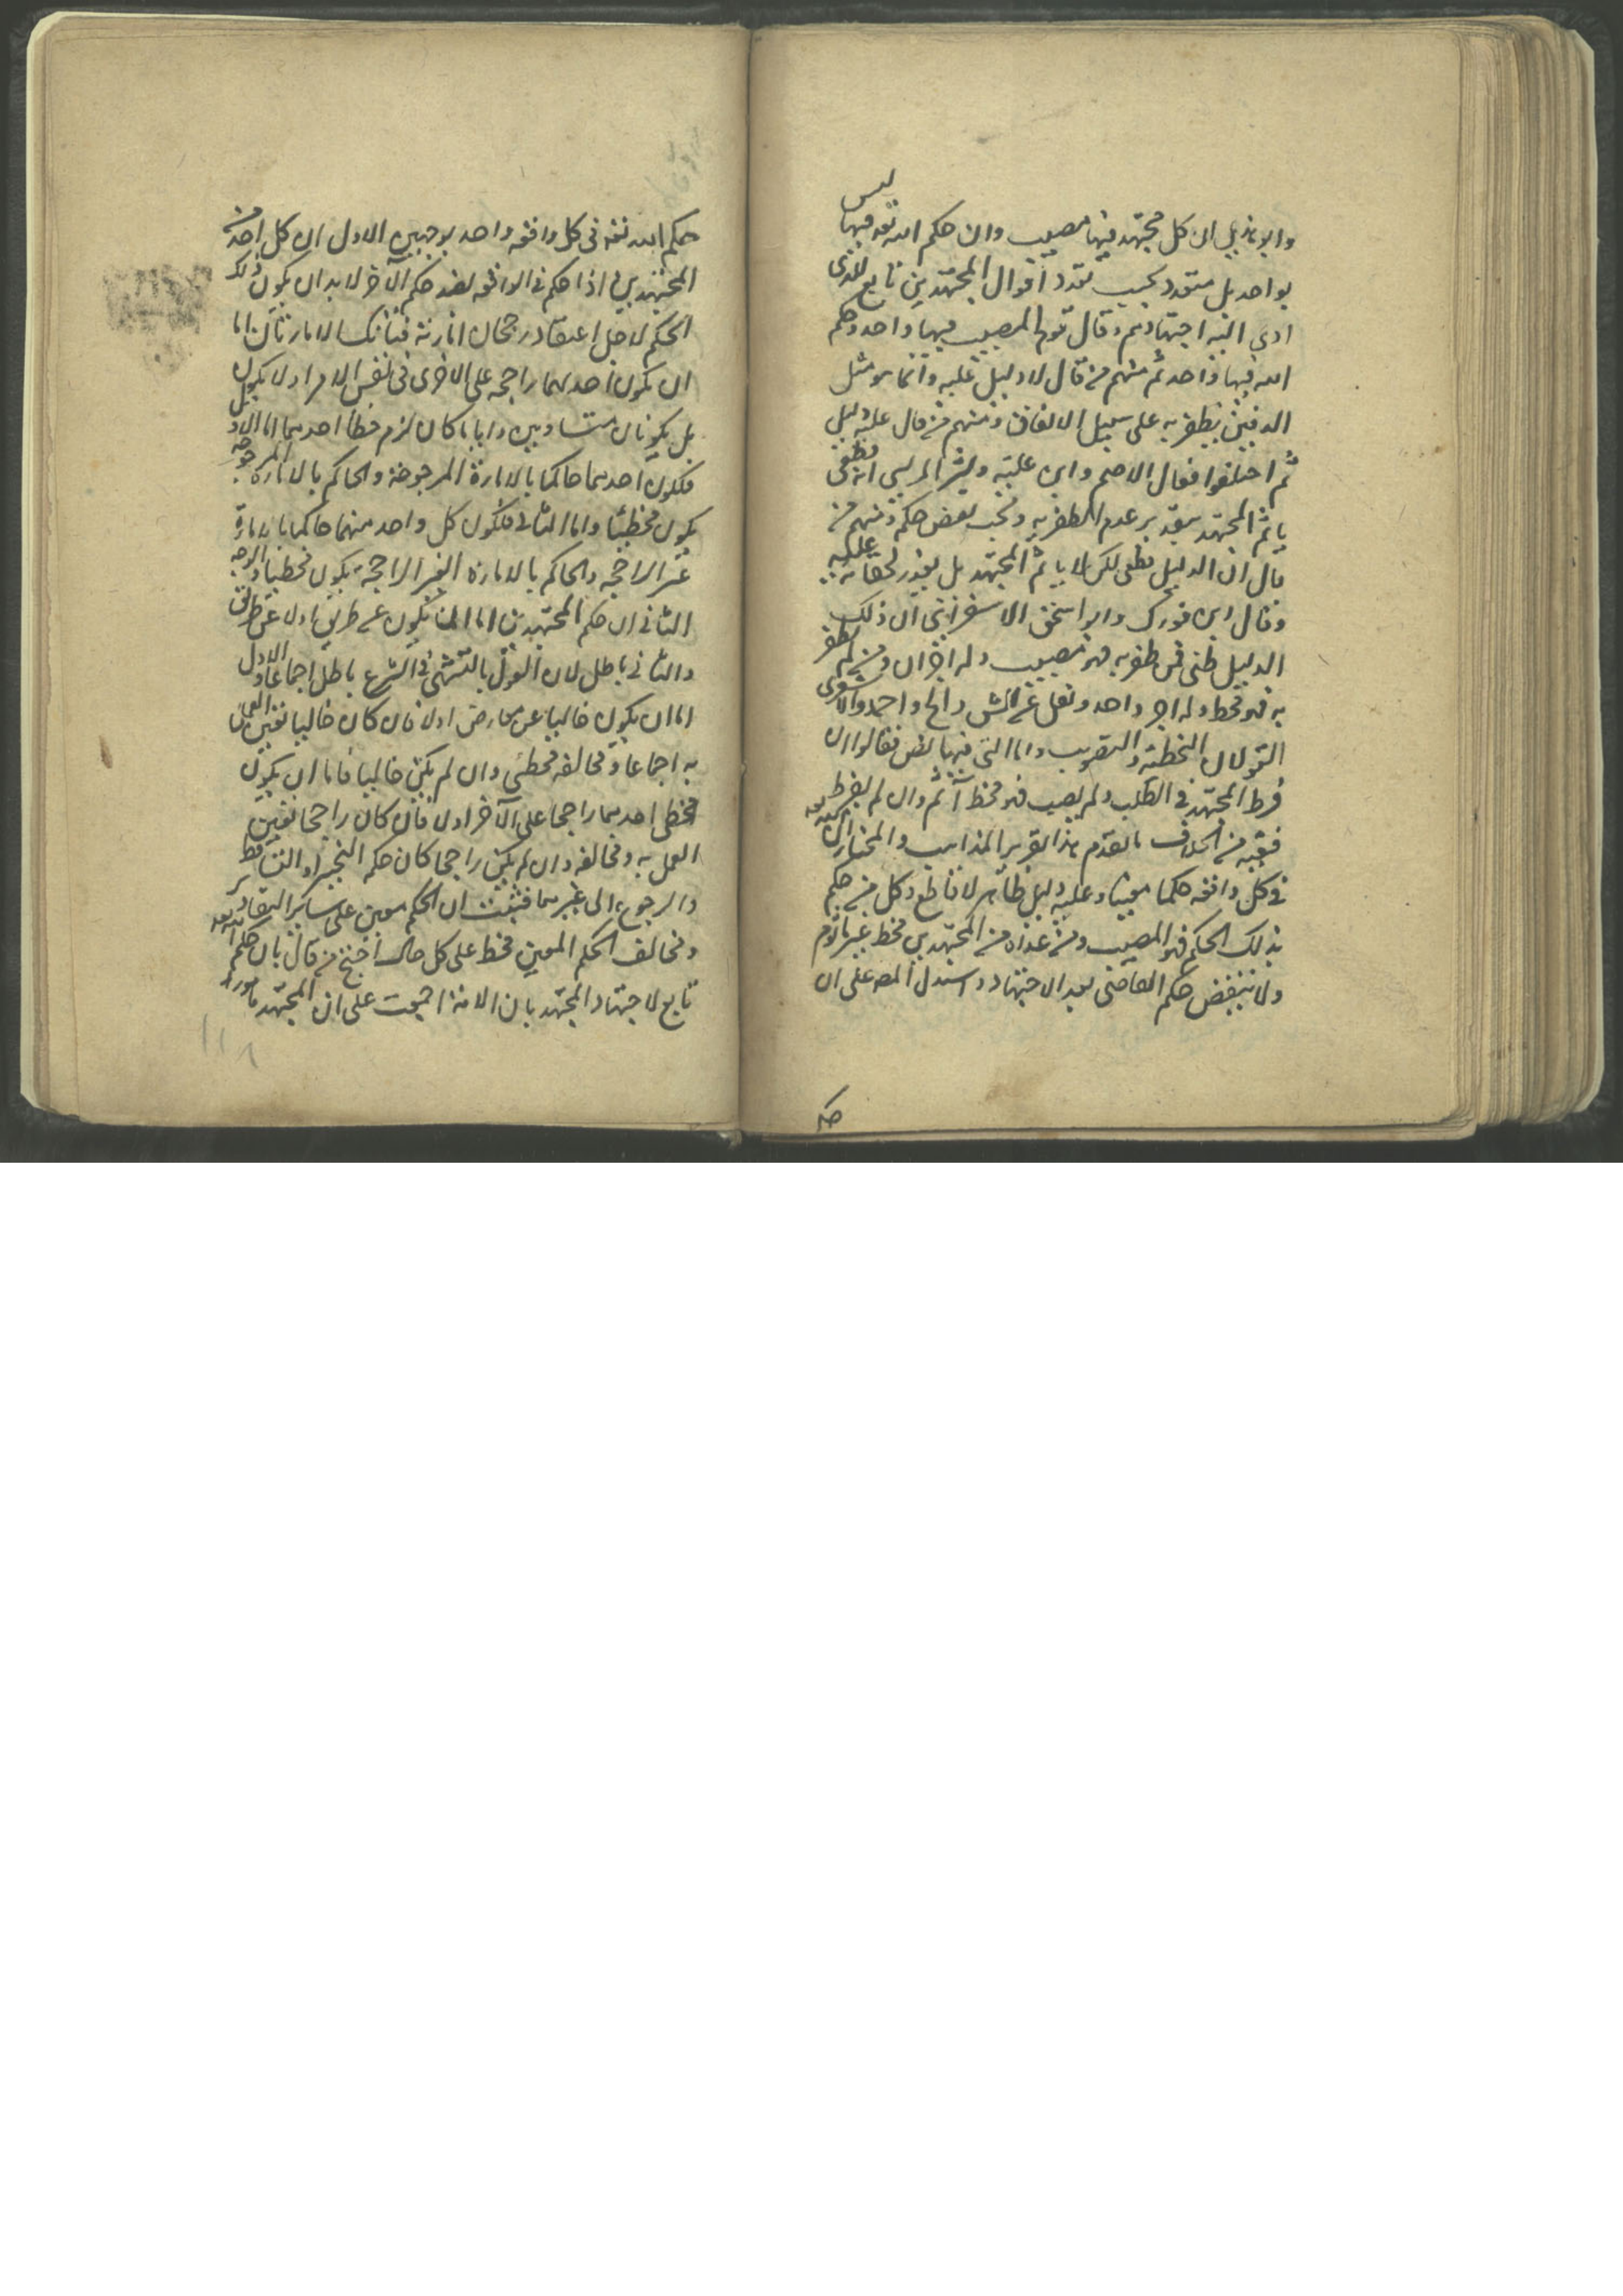 وابو هذيل ان كل مجتهد فيها مصيب وان حكم الله تعه فيها ليس
بواحد بل متعدد بحسب تعدد اقوال المجتهدين تابع للذى
ادى اليه اجتهادهم وقال قوم المصيب فيها واحد وحكم
الله فيها واحد ثم منهم من قال لا دليل عليه وانما هو مثل
الدفين يظفر به على سبيل الاتفاق ومنهم من قال عليه دليل
ثم اختلفوا فقال الاصم وابن علية وبشر المريسى انه قطعى
ياثم المجتهد بتقدير عدم الظفر به ونحب نقض حكمه ومنهم من
قال ان الدليل قطعى لكن لا ياثم المجتهد بل يعذر لخفائه عليه
وقال ابن فورك وابو اسحق الاسفرائنى ان ذلك
الدليل ظنى فمن ظفر به فهو مصيب وله اجران ومن لم يظفر
به فهو مخط وله اجر واحد ونقل عن الش واحمد والاشعرى
القولان التخطئة والتصويب واما التى فيها نص فقالوا ان
فرط المجتهد فى الطلب ولم يصب فهو مخط آثم وان لم يفرط
ففيه من الخلاف ما تقدم هذا تقرير المذاهب والمختار ان لله تعه
فى كل واقعه حكما معينا وعليه دليل ظاهر لا قاطع وكل من حكم
بذلك الحكم فهو المصيب ومن عداه من المجتهدين مخط غير ماثوم
ولا ينتقض حكم القاضى بعد الاجتهاد واستدل المصه على ان
حكم الله تعه فى كل واقعه واحد بوجهين الاول ان كل احد من
المجتهدين اذا حكم فى الواقعه بضد حكم الآخر لا بد ان يكون ذلك
الحكم لاجل اعتقاد رجحان امارته فتانك الامارتان اما
ان يكون احدهما راجحه على الاخرى فى نفس الامر او لا يكون
بل يكونان متساويين وايا ما كان لزم خطأ احدهما اما الاول
فلكون احدهما حاكما بالامارة المرجوحة والحاكم بالامارة المرجوحه
يكون مخطئا واما الثانى فلكون كل واحد منهما حاكما بالامارة
غير الراجحه والحاكم بالامارة الغير الراجحة يكون مخطيا الوجه
الثانى ان حكم المجتهدين اما ان يكون عن طريق او لا عن طريق
والثانى باطل لان القول بالتشهى فى الشرع باطل اجماعا والاول
اما ان يكون خاليا عن معارض او لا فان كان خاليا تعين العمل
به اجماعا ومخالفه مخطئى وان لم يكن خاليا فاما ان يكون
احدهما راجحا على الآخر او لا فان كان راجحا تعين
العمل به ومخالفه وان لم يكن راجحا كان حكمه التخيير او التساقط
والرجوع الى غيرهما فثبت ان الحكم معين على ساير التقادير
ومخالف الحكم المعين مخط على كل حال احتج من قال بان حكم الله تعه
تابع لاجتهاد المجتهد بان الامة اجمعت على ان المجتهد مامور